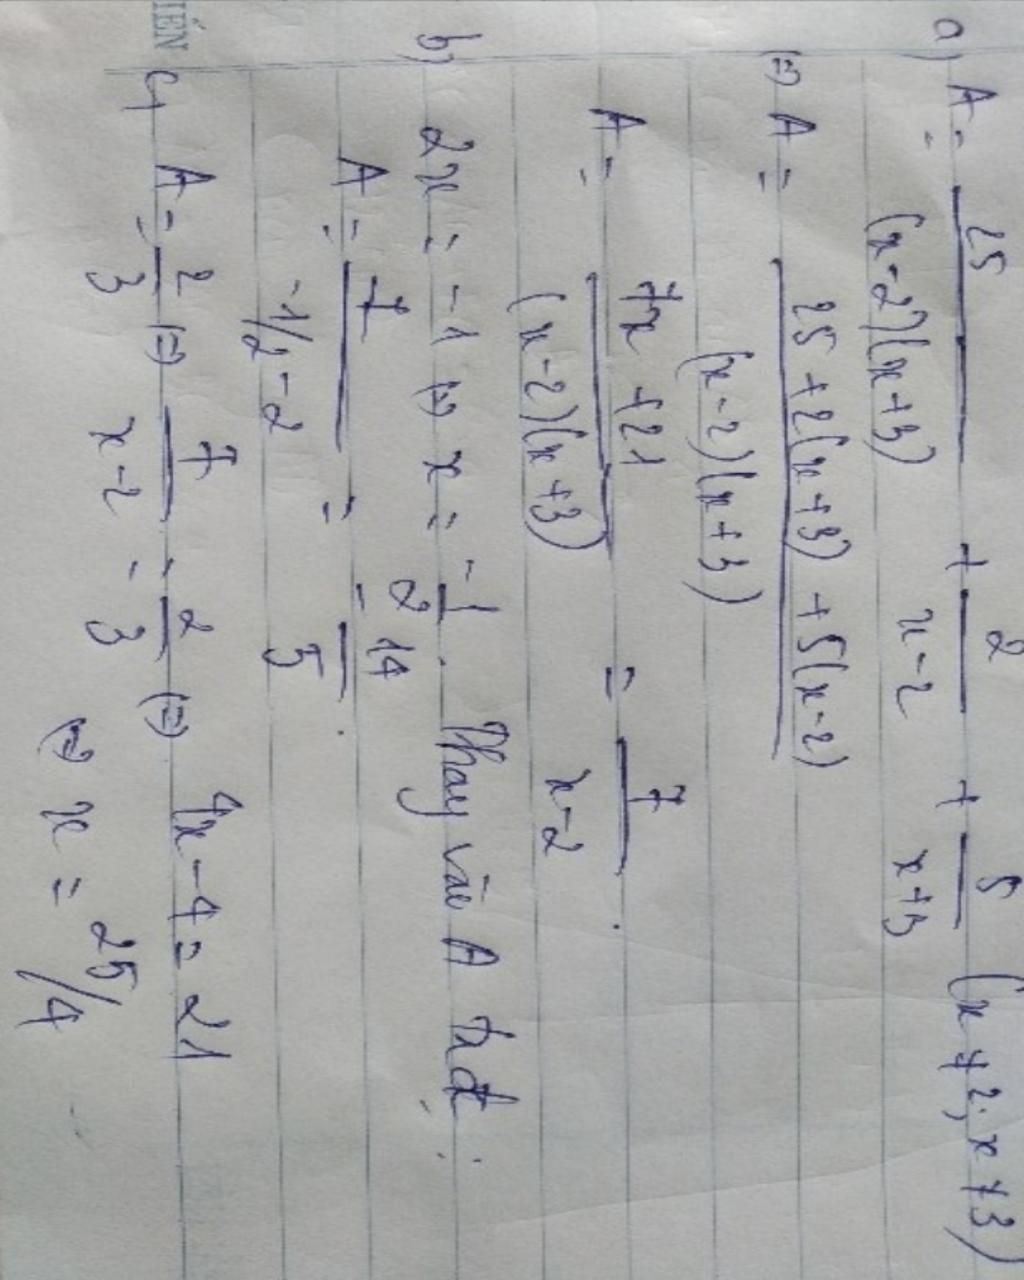 a) A = 25/((x-2)(x+3)) + 2/(x-2) + 5/(x+3) (x ≠ 2; x ≠ 3)
(=) A = (25 + 2(x+3) + 5(x-2))/((x-2)(x+3))
A = (7x + 21)/((x-2)(x+3)) = 7/(x-2).
b) 2x = -1 (=) x = -1/2. Thay vào A ta đc:
A = 7/(-1/2 - 2) = -14/5.
c) A = 2/3 (=) 7/(x-2) = 2/3 (=) 4x - 4 = 21
(=) x = 25/4
IÊN